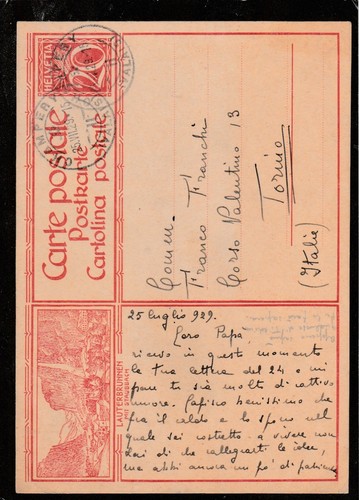 HELVETIA
20
CHAMPERY
25.VII.29
Carte postale
Postkarte
Cartolina postale
Comm.
Franco Franchi
Corso Valentino 13
Torino
(Italie)
LAUTERBRUNNEN
25 luglio 929.
Caro Papà,
ricevo in questo momento
la tua lettera del 24 e mi
pare tu sia molto di cattivo
umore. Capisco benissimo che
fra il caldo e lo sforzo nel
quale sei costretto a vivere non
hai di che rallegrarti le idee,
ma abbi ancora un po' di pazienza